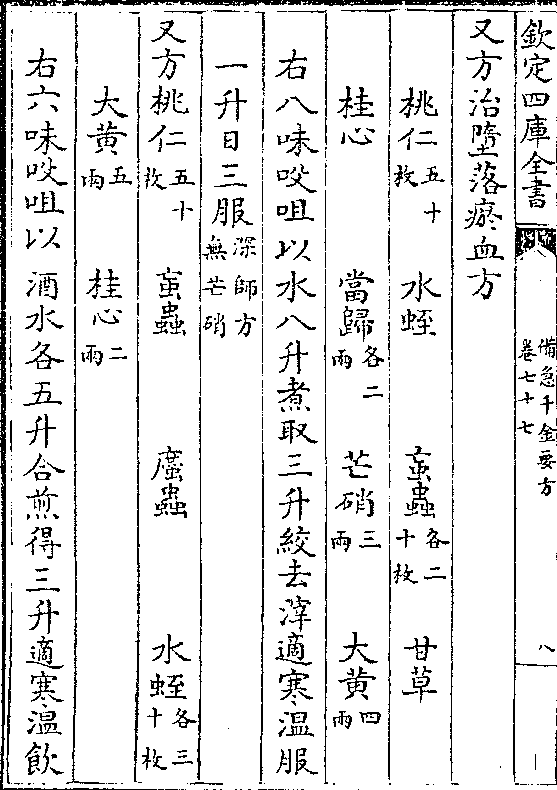 欽定四庫全書
備急千金要方
卷七十七
八
又方治墮落瘀血方
桃仁五十枚 水蛭 䖟蟲各二十枚 甘草
桂心 當歸各二兩 芒硝三兩 大黃四兩
右八味㕮咀以水八升煮取三升絞去滓適寒溫服
一升日三服深師方無芒硝
又方桃仁五十枚 䖟蟲 䗪蟲 水蛭各三十枚
大黃五兩 桂心二兩
右六味㕮咀以酒水各五升合煎得三升適寒溫飲